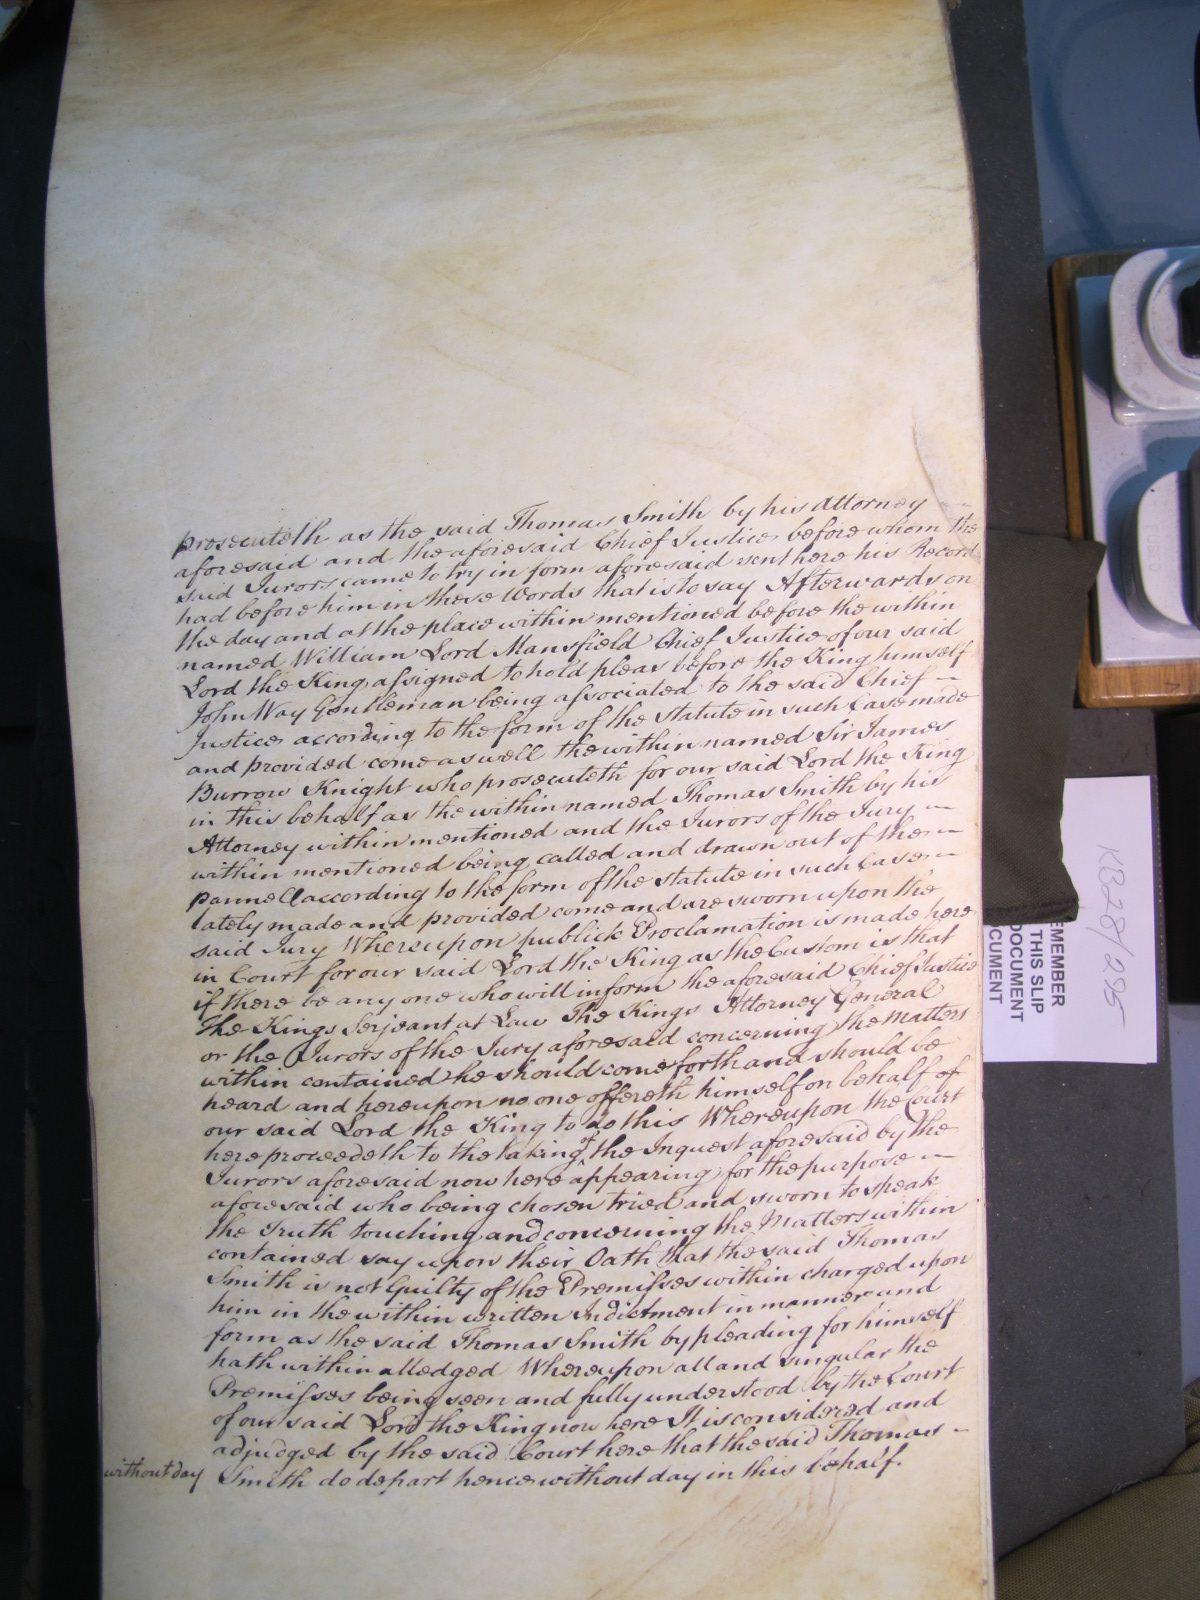 prosecuteth as the said Thomas Smith by his Attorney —
aforesaid and the aforesaid Chief Justice before whom the
said Jurors came to try in form aforesaid sent here his Record
had before him in these Words that is to say Afterwards on
the day and at the place within mentioned before the within
named William Lord Mansfield Chief Justice of our said
Lord the King assigned to hold pleas before the King himself
John Way Gentleman being associated to the said Chief —
Justice according to the form of the statute in such Case made
and provided come as well the within named Sir James
Burrow Knight who prosecuteth for our said Lord the King
in this behalf as the within named Thomas Smith by his
Attorney within mentioned and the Jurors of the Jury —
within mentioned being called and drawn out of the —
pannel according to the form of the statute in such Case —
lately made and provided come and are sworn upon the
said Jury Whereupon publick Proclamation is made here
in Court for our said Lord the King as the Custom is that
if there be any one who will inform the aforesaid Chief Justice
the Kings Serjeant at Law The Kings Attorney General
or the Jurors of the Jury aforesaid concerning the Matters
within contained he should come forth and should be
heard and hereupon no one offereth himself on behalf of
our said Lord the King to do this Whereupon the Court
here proceedeth to the taking of the Inquest aforesaid by the
Jurors aforesaid now here appearing for the purpose —
aforesaid who being chosen tried and sworn to speak
the Truth touching and concerning the Matters within
contained say upon their Oath that the said Thomas
Smith is not Guilty of the Premisses within charged upon
him in the within written Indictment in manner and
form as the said Thomas Smith by pleading for himself
hath within alledged Whereupon all and singular the
Premisses being seen and fully understood by the Court
of our said Lord the King now here It is considered and
adjudged by the said Court here that the said Thomas —
without day Smith do depart hence without day in this behalf.
KB28/295
EMEMBER
THIS SLIP
DOCUMENT
CUMENT